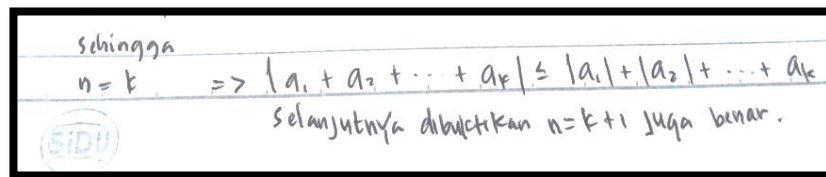 sehingga
n = k => |a₁ + a₂ + ... + aₖ| ≤ |a₁| + |a₂| + ... + aₖ
Selanjutnya dibuktikan n = k + 1 juga benar.
SiDU